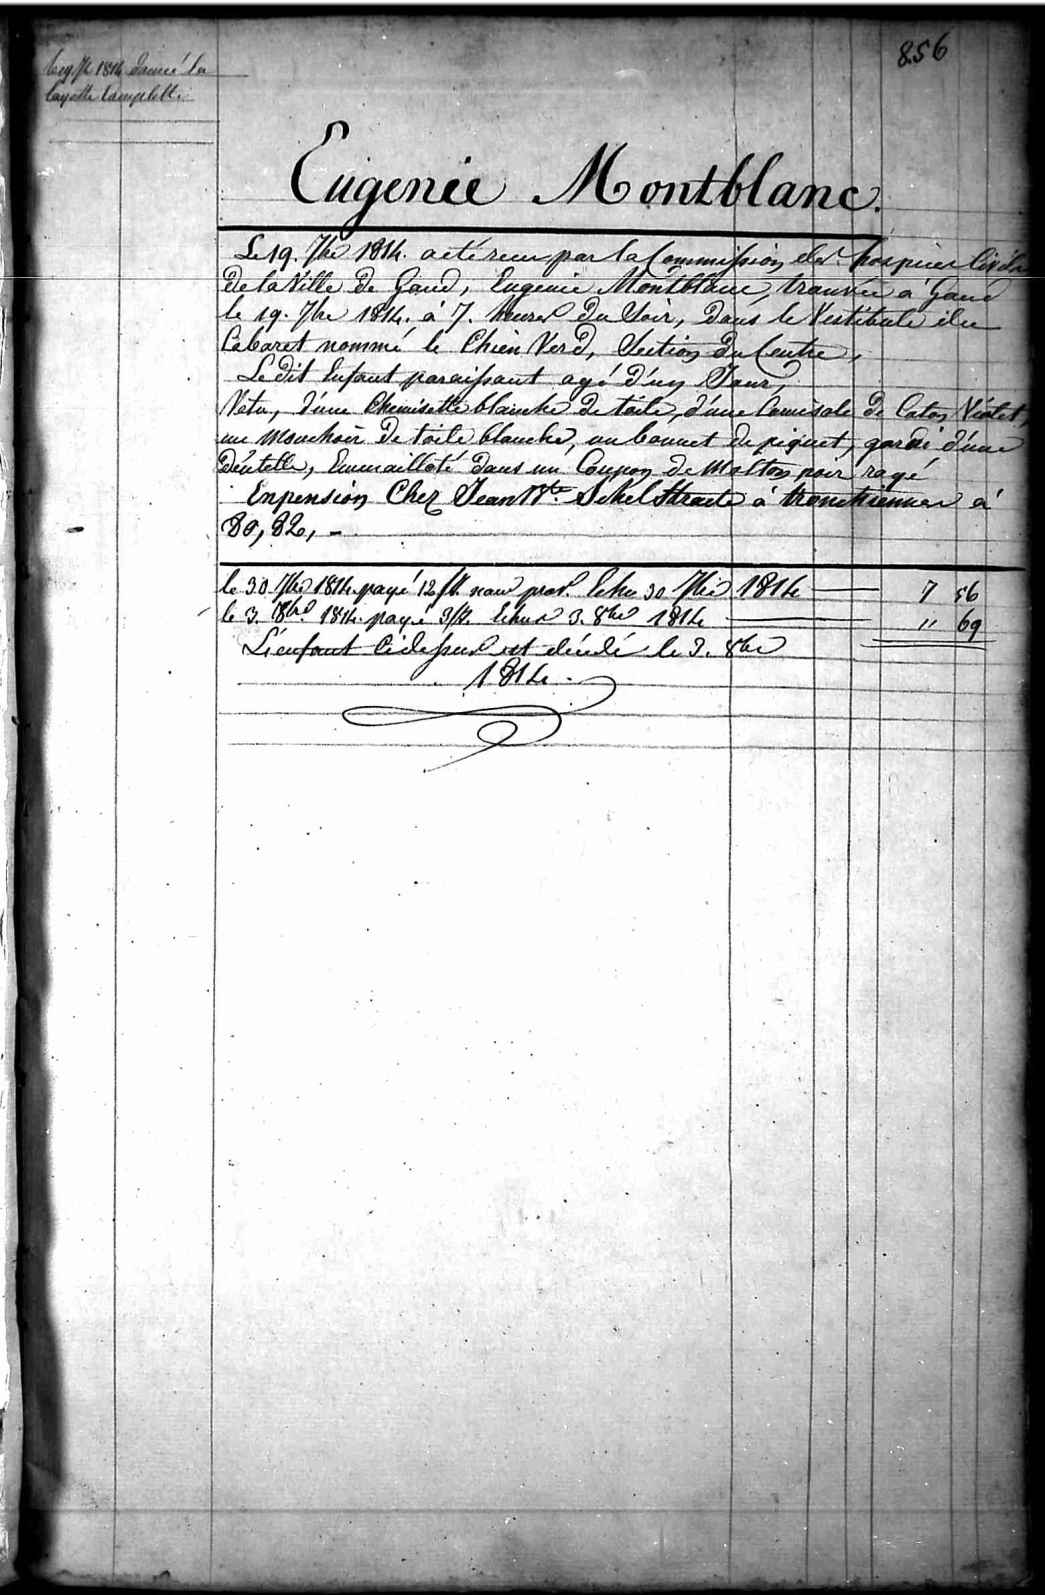 856
Le 19 7bre 1814 donné la
layette Complette
Eugenie Montblanc.
Le 19. 7bre 1814. a été recu par la Commission des hospices Civils
de la Ville de Gand, Eugenie Montblanc, trouvée à Gand
le 19. 7bre 1814. à 7. heures du Soir, dans le Vestibule du
Cabaret nommé le Chien Verd, Section du Centre,
Le dit Enfant paraissant agé d'un Jour,
Vetu, d'une Chemisette blanche de toile, d'une Camisole de Coton Violet,
un Mouchoir de toile blanche, un bonnet de piquet, garni d'une
Dentelle, Emmailloté dans un Coupon de Molton noir rayé
En pension Chez Jean Bte. Schelstraete à tronchiennes à
80, 82, -
le 30. 7bre 1814. payé 12 frs. Echu 30 7bre 1814 — 7 56
le 3. 8bre 1814. payé 3 frs. Echus 3. 8bre 1814 — " 69
L'enfant Cidessus est décédé le 3. 8bre
1814.